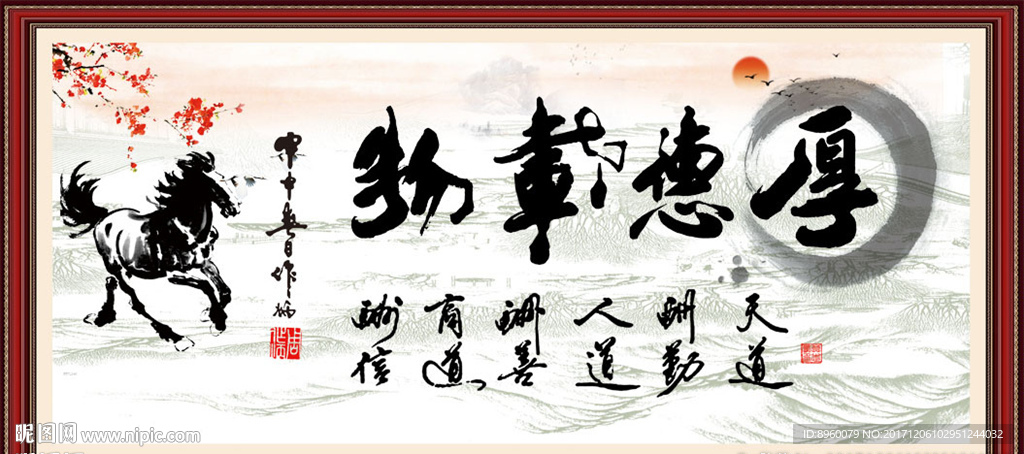 厚德載物
天道酬勤
人道酬善
商道酬信
昵图网 www.nipic.com
ID:8960079 NO.20171206102951244032